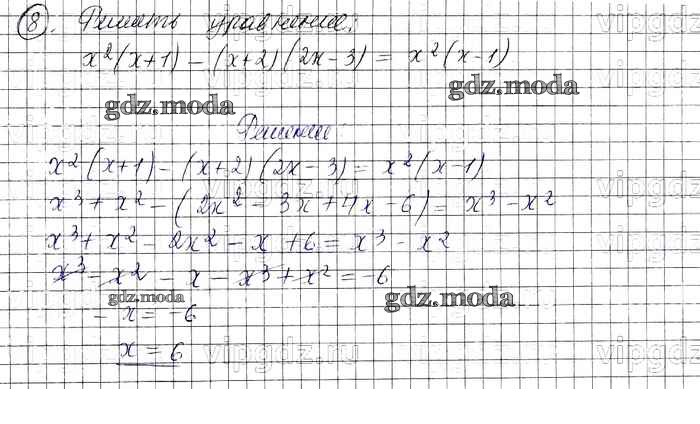 8. Решить уравнение:
x²(x+1) - (x+2)(2x-3) = x²(x-1)
gdz.moda
gdz.moda
Решение
x²(x+1) - (x+2)(2x-3) = x²(x-1)
x³ + x² - (2x² - 3x + 4x - 6) = x³ - x²
x³ + x² - 2x² - x + 6 = x³ - x²
x³ - x² - x - x³ + x² = -6
gdz.moda
gdz.moda
- x = -6
x = 6
vipgdz.ru
vipgdz